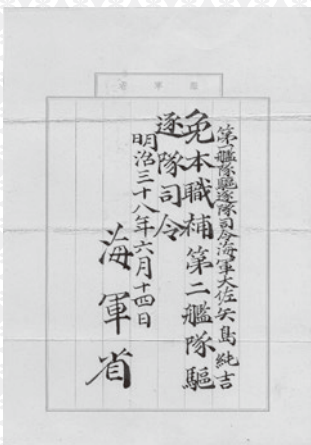 第一艦隊驅逐隊司令海軍大佐矢島純吉
免本職補第二艦隊驅
逐隊司令
明治三十八年六月十四日
海軍省